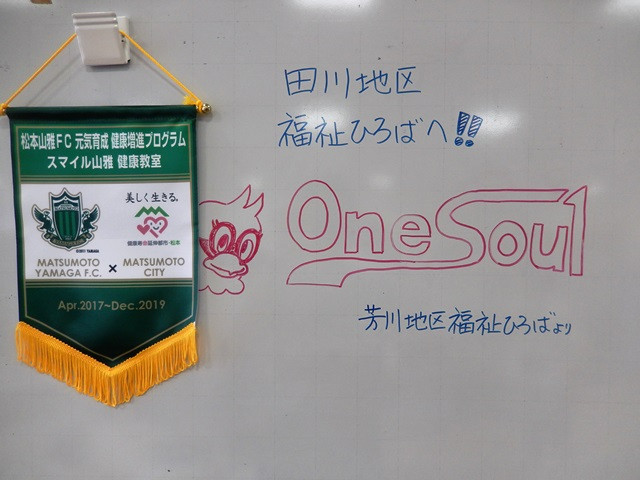 松本山雅FC 元気育成 健康増進プログラム
スマイル山雅 健康教室
美しく生きる。
健康寿命延伸都市・松本
MATSUMOTO YAMAGA F.C.
×
MATSUMOTO CITY
Apr.2017~Dec.2019
田川地区
福祉ひろばへ!!
One Soul
芳川地区福祉ひろばより